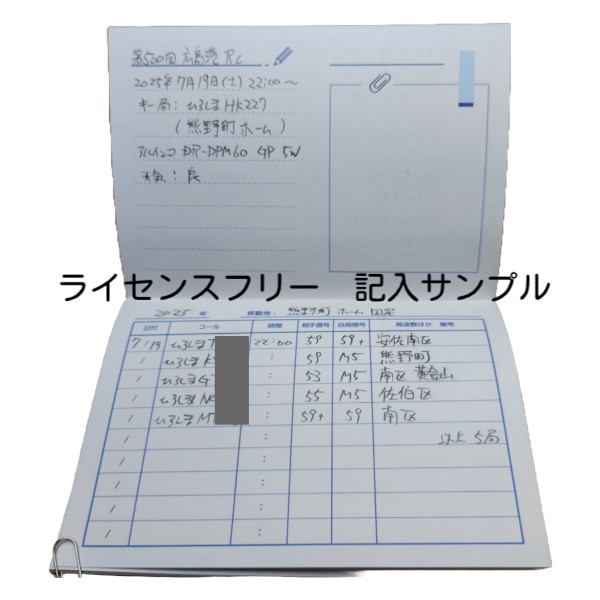 第500回 広島湾RC
2025年7月19日(土)22:00〜
キー局:ひろしまHK227
(熊野町ホーム)
アルインコ DR-DPM60 GP 5W
天気:良
ライセンスフリー 記入サンプル
2025年 移動地: 熊野町 ホーム 固定
日付 コール 時間 相手信号 自局信号 周波数ほか 備考
7/19 ひろしま 22:00 59 59+ 安佐南区
/ ひろしまK : 59 M5 熊野町
/ ひろしまG : 53 M5 南区 黄金山
/ ひろしまN : 55 M5 佐伯区
/ ひろしまM : 59+ 59 南区
/ : 以上 5局
/ :
/ :
/ :
/ :